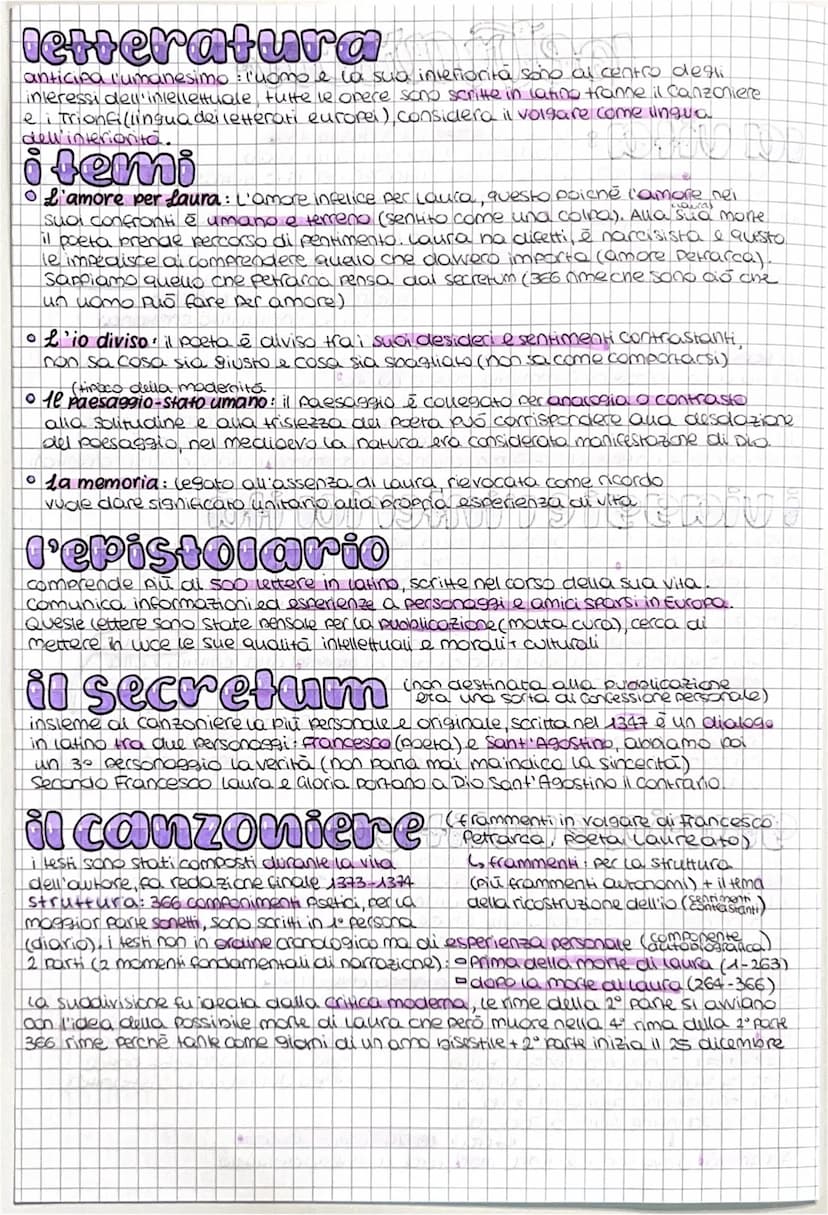 letteratura
anticipa l'umanesimo: l'uomo e la sua interiorità sono al centro degli
interessi dell'intellettuale, tutte le opere sono scritte in latino tranne il Canzoniere
e i Trionfi (lingua dei letterati europei), considera il volgare come lingua
dell'interiorità.
i temi
L'amore per Laura: L'amore infelice per Laura, questo poiché l'amore nei
suoi confronti è umano e terreno (sentito come una colpa). Alla sua morte
(Laura)
il poeta prende percorso di pentimento. Laura ha difetti, è narcisista e questo
le impedisce di comprendere quello che davvero importa (amore Petrarca).
Sappiamo quello che Petrarca pensa dal secretum (366 rime che sono ciò che
un uomo può fare per amore)
L'io diviso: il poeta è diviso tra i suoi desideri e sentimenti contrastanti,
non sa cosa sia giusto e cosa sia sbagliato (non sa come comportarsi)
(tipico della modernità
Il paesaggio-stato umano: il paesaggio è collegato per analogia o contrasto
alla solitudine e alla tristezza del poeta può corrispondere alla desolazione
del paesaggio, nel medioevo la natura era considerata manifestazione di Dio
La memoria: legato all'assenza di Laura, rievocata come ricordo
vuole dare significato unitario alla propria esperienza di vita
l'epistolario
comprende più di 500 lettere in latino, scritte nel corso della sua vita.
Comunica informazioni ed esperienze a personaggi e amici sparsi in Europa.
Queste lettere sono state pensate per la pubblicazione (molta cura), cerca di
mettere in luce le sue qualità intellettuali e morali + culturali
il secretum (non destinata alla pubblicazione
era una sorta di confessione personale)
insieme al canzoniere la più personale e originale, scritta nel 1347 è un dialogo
in latino tra due personaggi: Francesco (poeta) e Sant'Agostino, abbiamo poi
un 3° personaggio La verità (non parla mai ma indica la sincerità)
Secondo Francesco Laura e Gloria portano a Dio Sant'Agostino il contrario.
il canzoniere (frammenti in volgare di Francesco
Petrarca, poeta Laureato)
i testi sono stati composti durante la vita
dell'autore, fa redazione finale 1373-1374
struttura: 366 componimenti poetici, per la
maggior parte sonetti, sono scritti in 1° persona
↳ frammenti: per la struttura
(più frammenti autonomi) + il tema
della ricostruzione dell'io (sentimenti
contrastanti)
(diario). i testi non in ordine cronologico ma di esperienza personale (componente
autobiografica)
2 parti (2 momenti fondamentali di narrazione): prima della morte di Laura (1-263)
dopo la morte di Laura (264-366)
La suddivisione fu ideata dalla critica moderna, le rime della 2° parte si avviano
con l'idea della possibile morte di Laura che però muore nella 4° rima della 2° parte
366 rime perché tante come giorni di un anno bisestile + 2° parte inizia il 25 dicembre